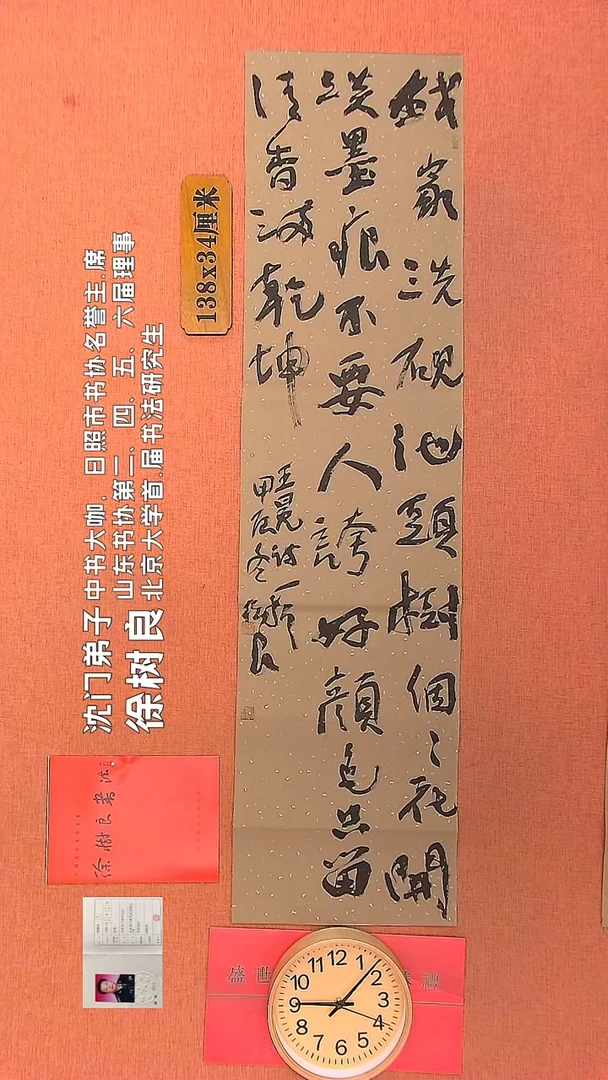 我家洗硯池頭樹個々花開
淡墨痕不要人誇好顏色只留
清香滿乾坤
王冕詩一首
甲辰冬樹良
138x34厘米
沈门弟子 中书大咖.日照市书协名誉主.席
山东书协第二、四、五、六届理事
徐树良 北京大学首.届书法研究生
徐樹良書法
盛世
12 1 2 3 4 5 6 7 8 9 10 11